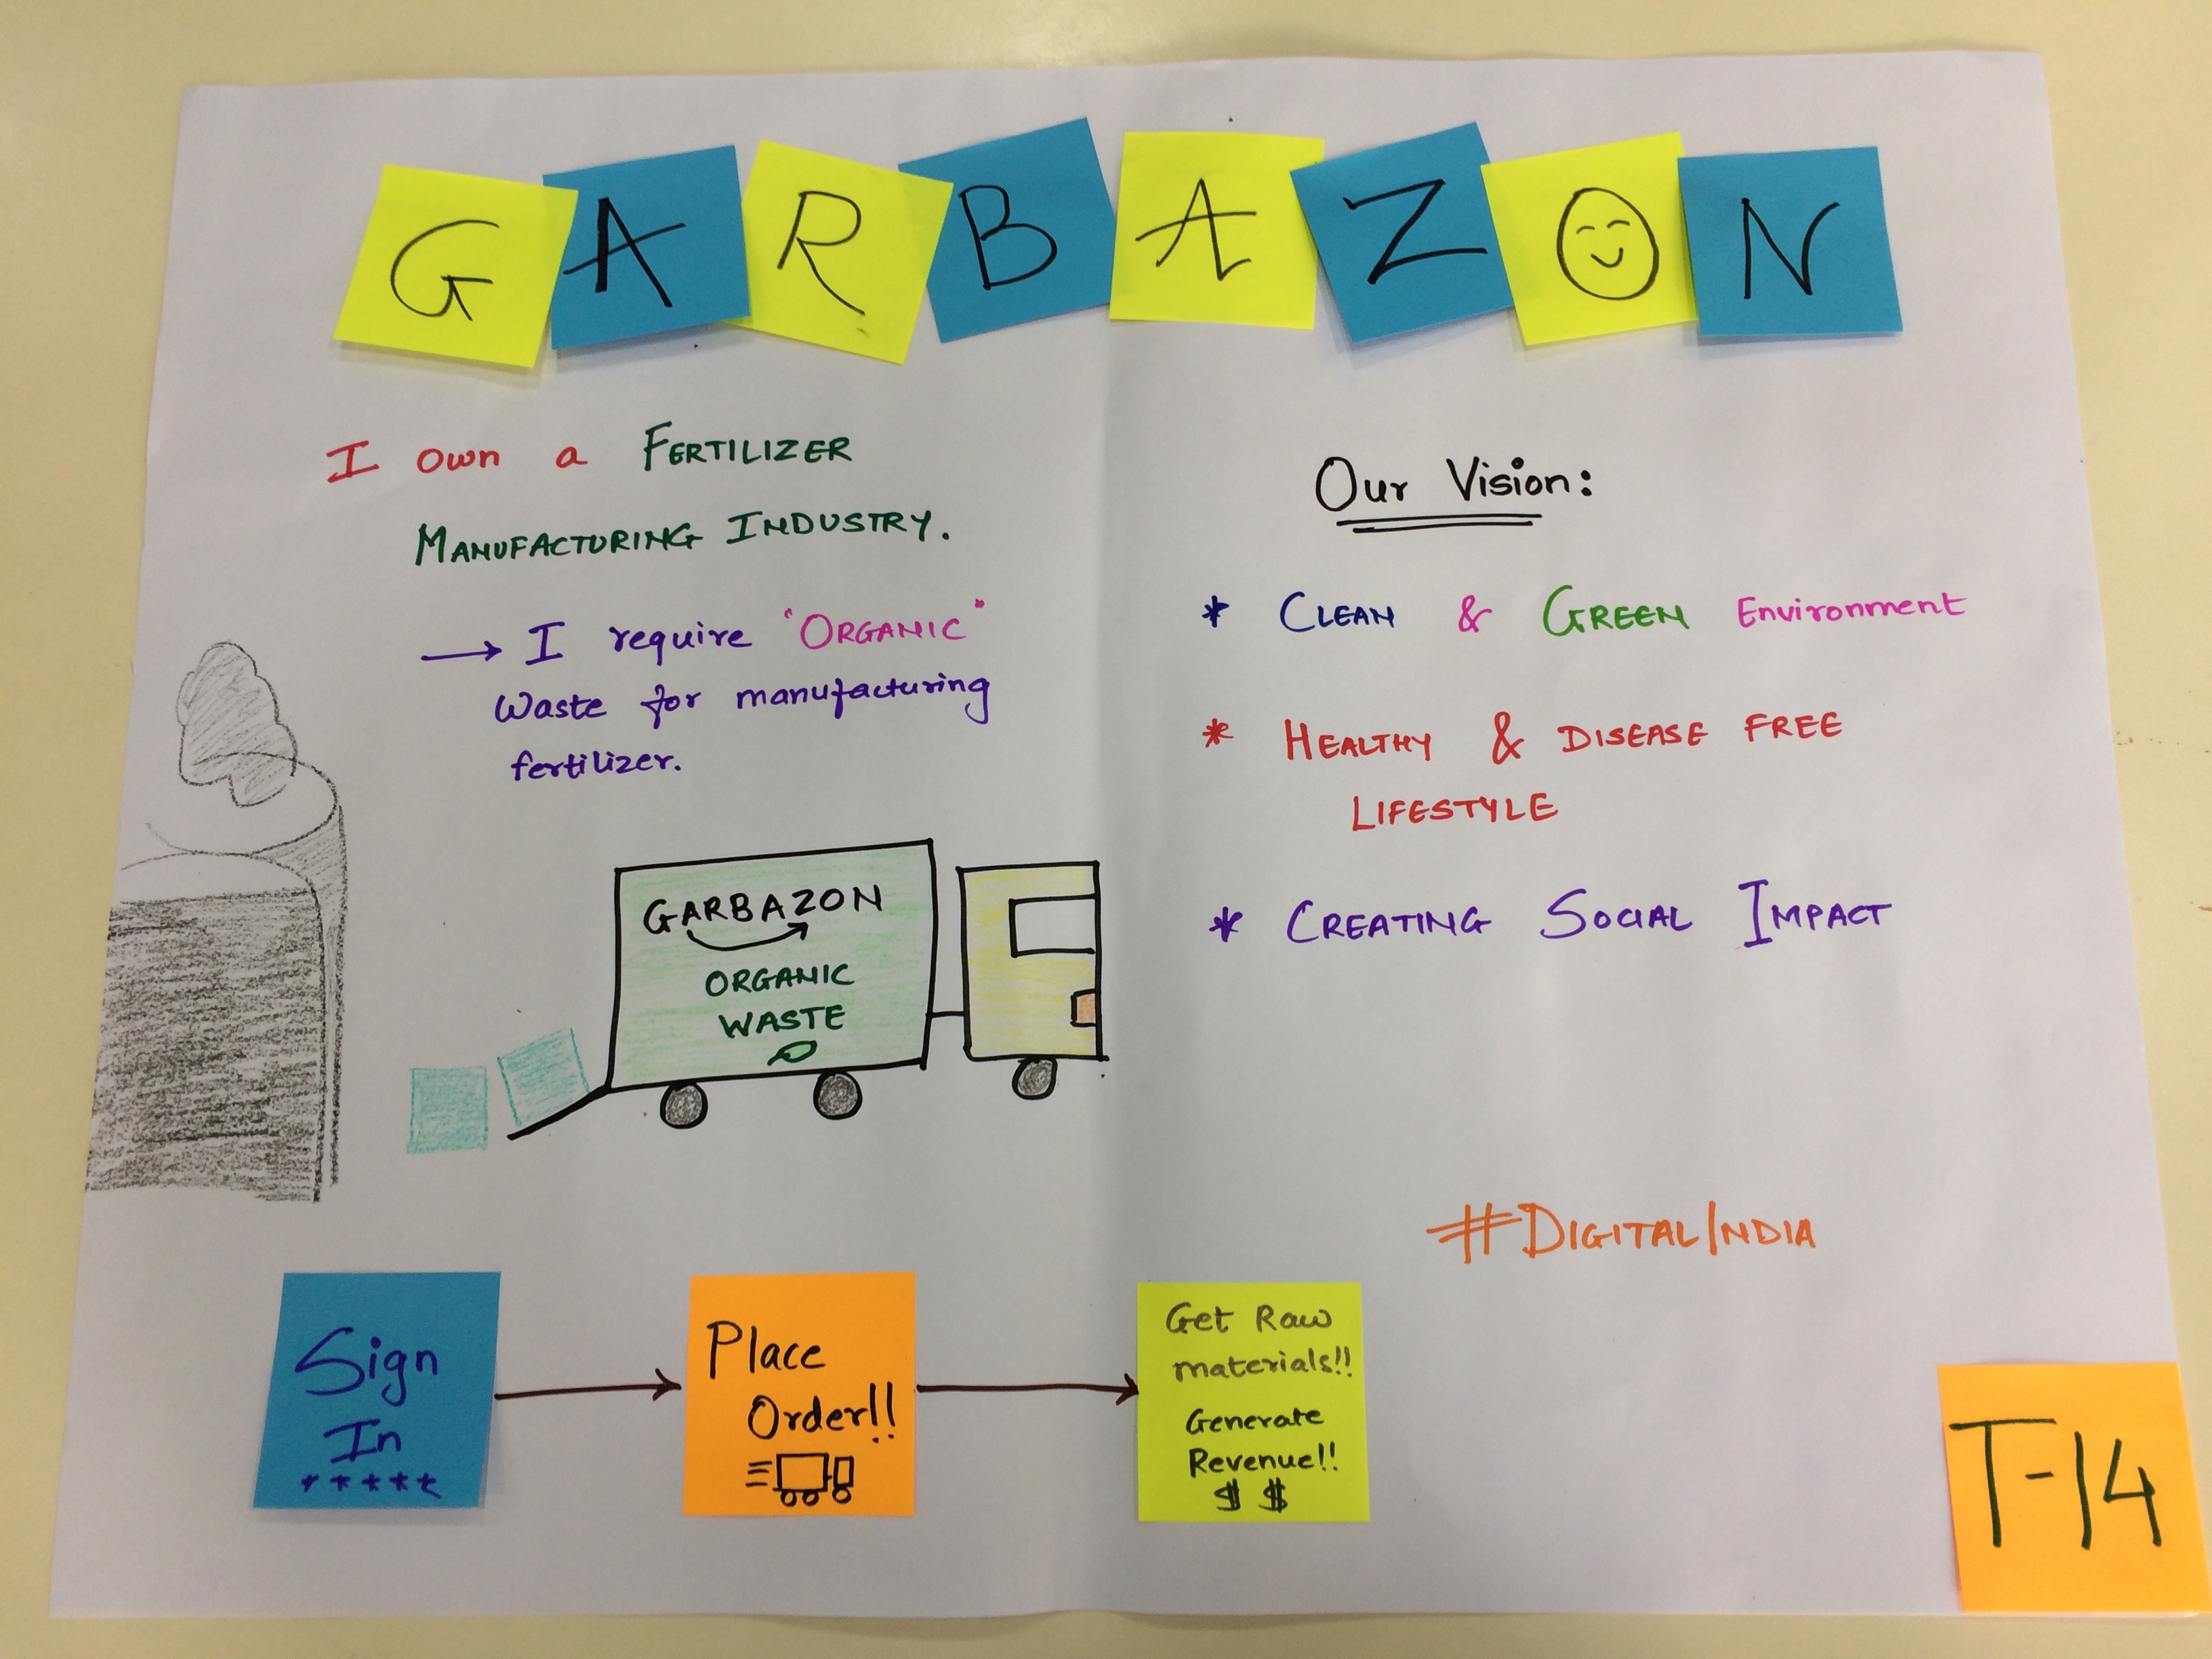 GARBAZON
I own a FERTILIZER
MANUFACTURING INDUSTRY.
→ I require "ORGANIC"
Waste for manufacturing
fertilizer.
GARBAZON
ORGANIC
WASTE
Our Vision:
* CLEAN & GREEN Environment
* HEALTHY & DISEASE FREE
LIFESTYLE
* CREATING SOCIAL IMPACT
#DIGITALINDIA
Sign
In
*****
Place
Order!!
Get Raw
materials!!
Generate
Revenue!!
$ $
T-14